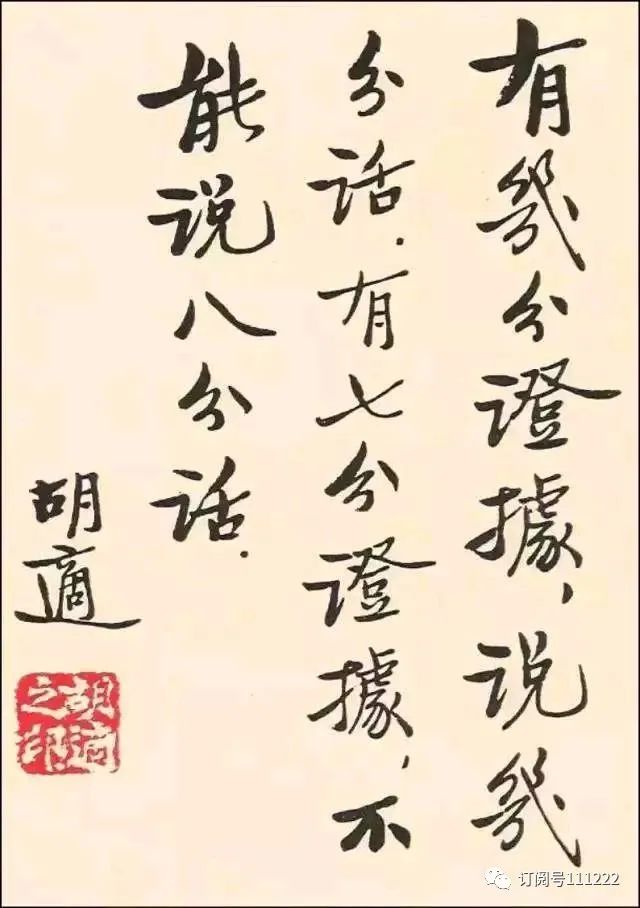 有幾分證據，说幾
分话．有七分證據，不
能说八分话．
胡適
胡適之印
订阅号111222